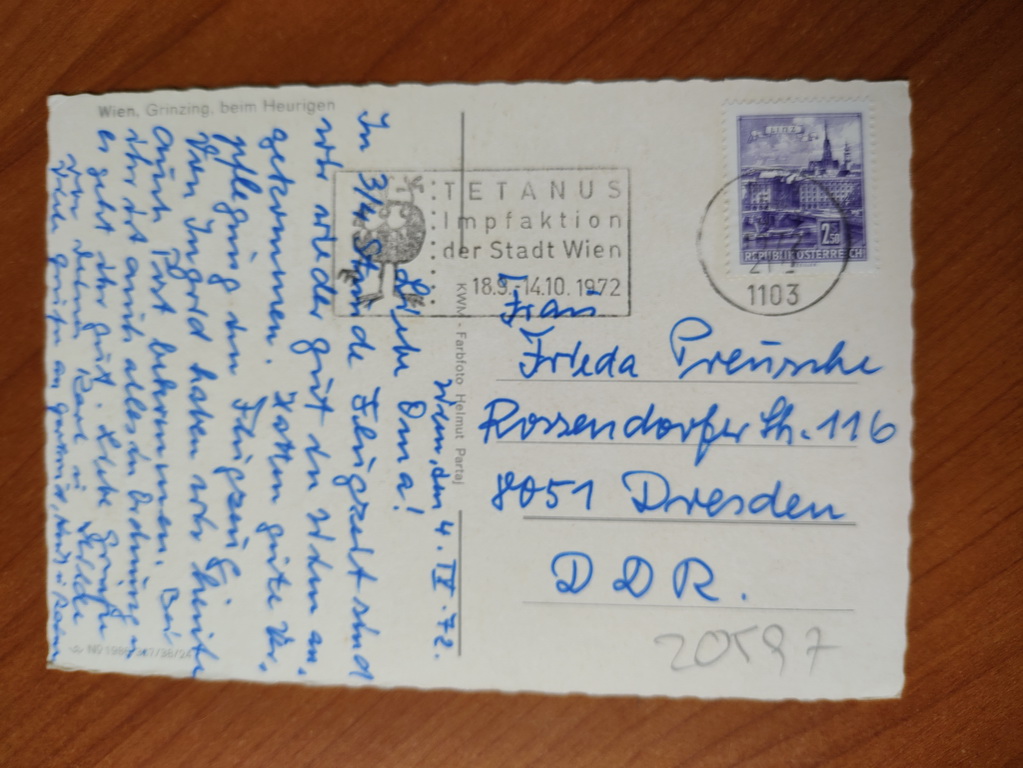 Wien, Grinzing, beim Heurigen
TETANUS
Impfaktion
der Stadt Wien
18.9.-14.10.1972
LINZ
2.50
REPUBLIK ÖSTERREICH
1103
KWM - Farbfoto Helmut Partaj
Wien, den 4. IX. 72.
Liebe Oma!
In 3/4 Stunde Flugzeit sind
wir wieder gut in Wien an-
gekommen. Hatten gute Ver-
pflegung im Flugzeug.
Von Ingrid haben wir heute
auch Post bekommen. Bei
ihr ist auch alles in Ordnung u.
es geht ihr gut. Liebe Grüße
von Deinem Karl u.
Viele Grüße an
Frau
Frieda Preusche
Rossendorfer Str. 116
8051 Dresden
DDR.
20597